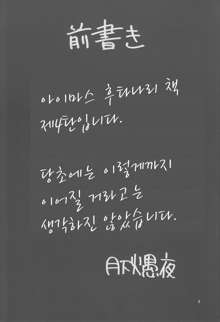 前書き
아이마스 후타나리 책
제4탄입니다.
당초에는 이렇게까지
이어질 거라고는
생각하진 않았습니다.
月下愚夜